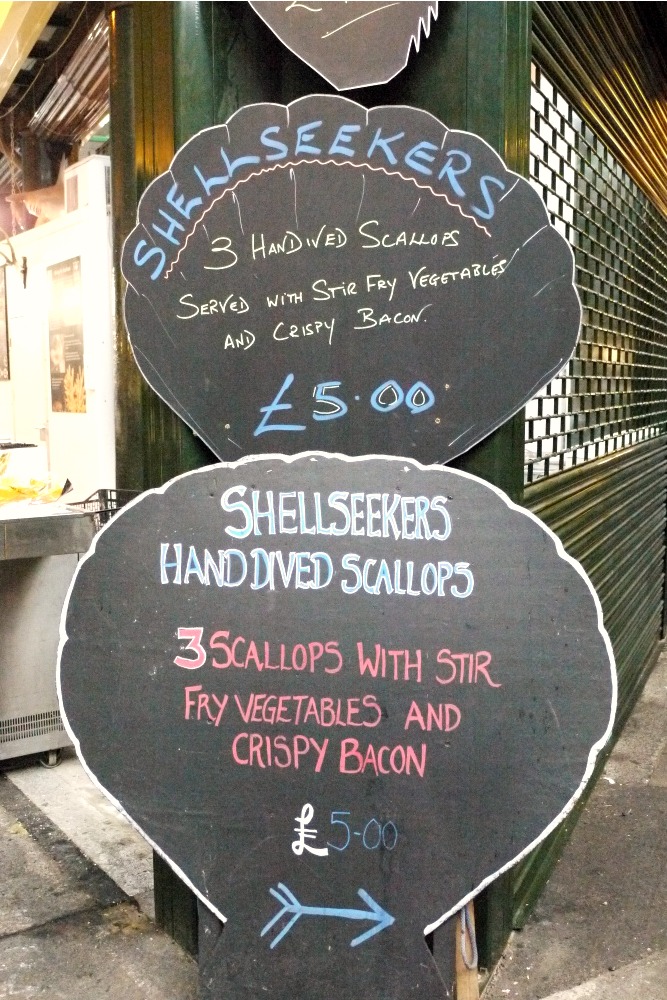 £
SHELLSEEKERS
3 HANDIVED SCALLOPS
SERVED WITH STIR FRY VEGETABLES
AND CRISPY BACON.
£5.00
SHELLSEEKERS
HAND DIVED SCALLOPS
3 SCALLOPS WITH STIR
FRY VEGETABLES AND
CRISPY BACON
£5-00